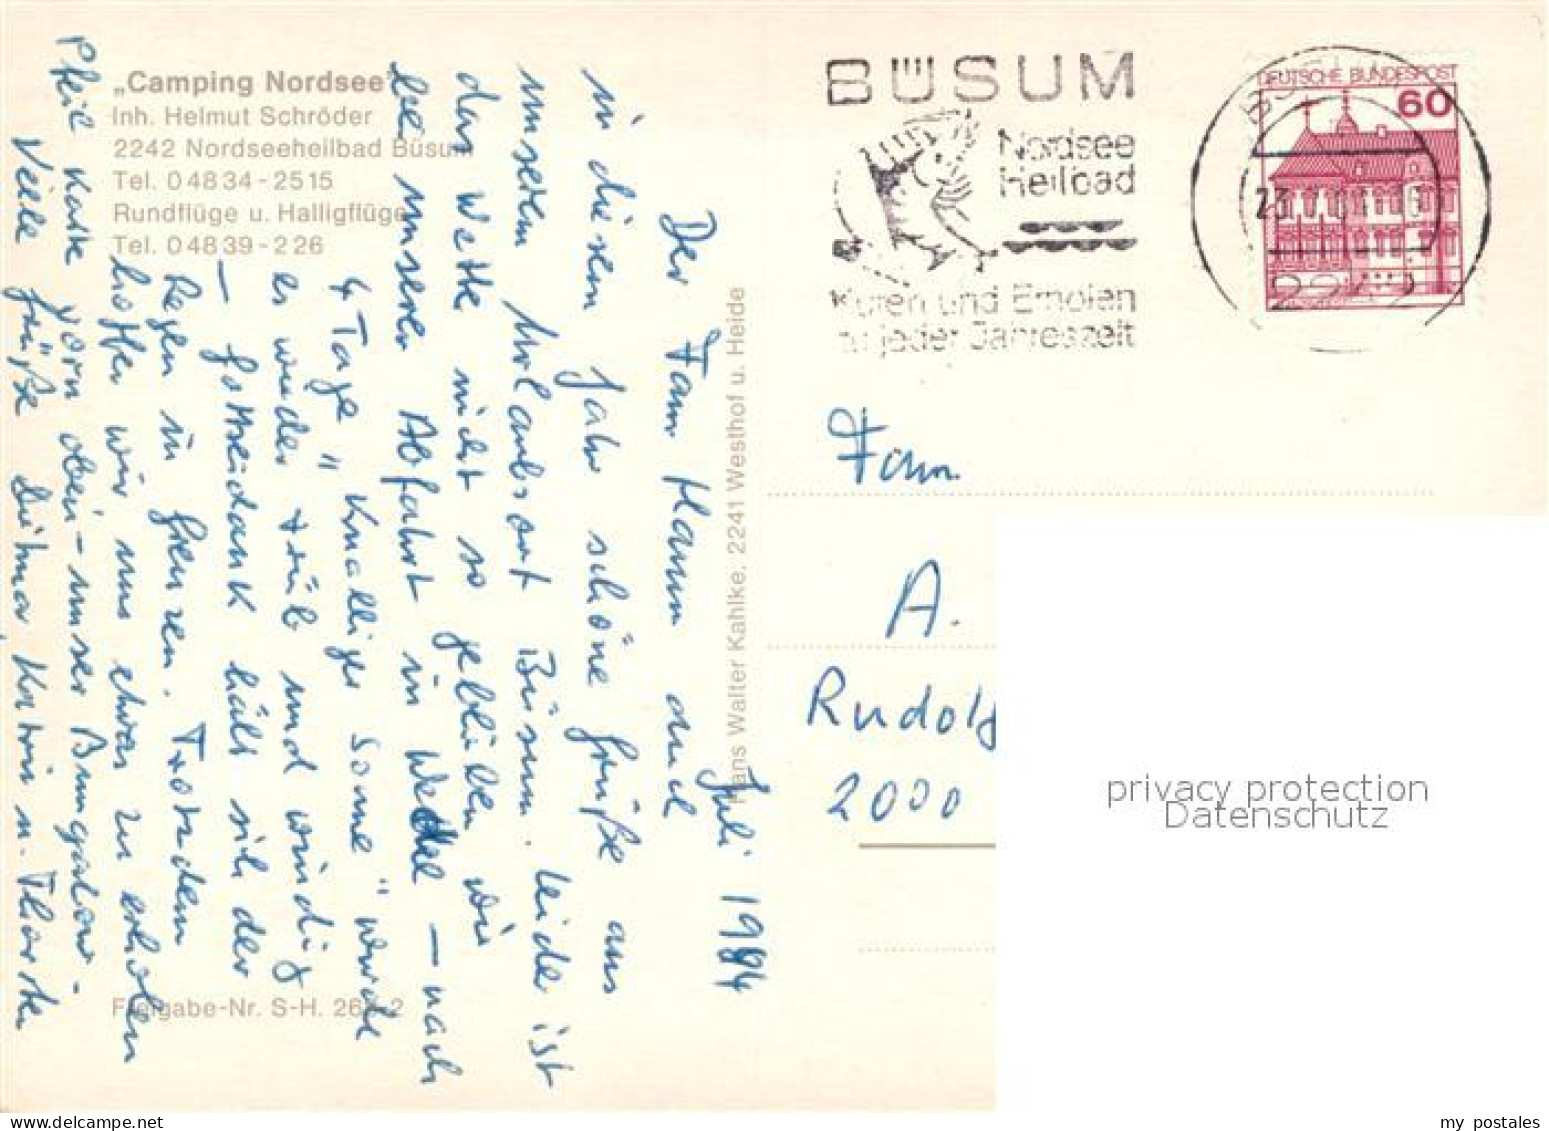 „Camping Nordsee“
Inh. Helmut Schröder
2242 Nordseeheilbad Büsum
Tel. 04834-2515
Rundflüge u. Halligflüge
Tel. 04839-226
BÜSUM
Nordsee
Heilbad
Kuren und Erholen
zu jeder Jahreszeit
DEUTSCHE BUNDESPOST
60
Juli 1984
Der Fam Hamm auch
in diesem Jahr schöne Grüße aus
unserem Urlaubsort Büsum. Leider ist
das Wetter nicht so geblieben wie
bei unserer Abfahrt in Wedel – nach
4 Tage "knalliger Sonne" wurde
es wieder trüb und windig
– Gottseidank hält sich der
Regen in Grenzen. Trotzdem
hoffen wir uns etwas zu erholen
Pfeil Karte vorn oben – unser Bungalow –
Viele Grüße Dietmar Katrin u. Thorsten
Hans Walter Kahlke, 2241 Westhof u. Heide
Freigabe-Nr. S-H. 26 -2
Fam.
A.
Rudolf
2000
privacy protection
Datenschutz
my postales